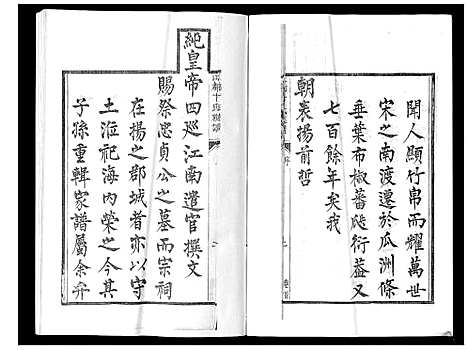 聞人頤竹帛而耀萬世
宋之南渡遷於瓜洲條
垂葉布椒蕃瓞衍益又
七百餘年矣我
朝襃揚前哲
純皇帝四巡江南遣官撰文
賜祭忠貞公之墓而宗祠
在揚之郡城者亦以守
土涖祀海内榮之今其
子孫重輯家譜屬余弁